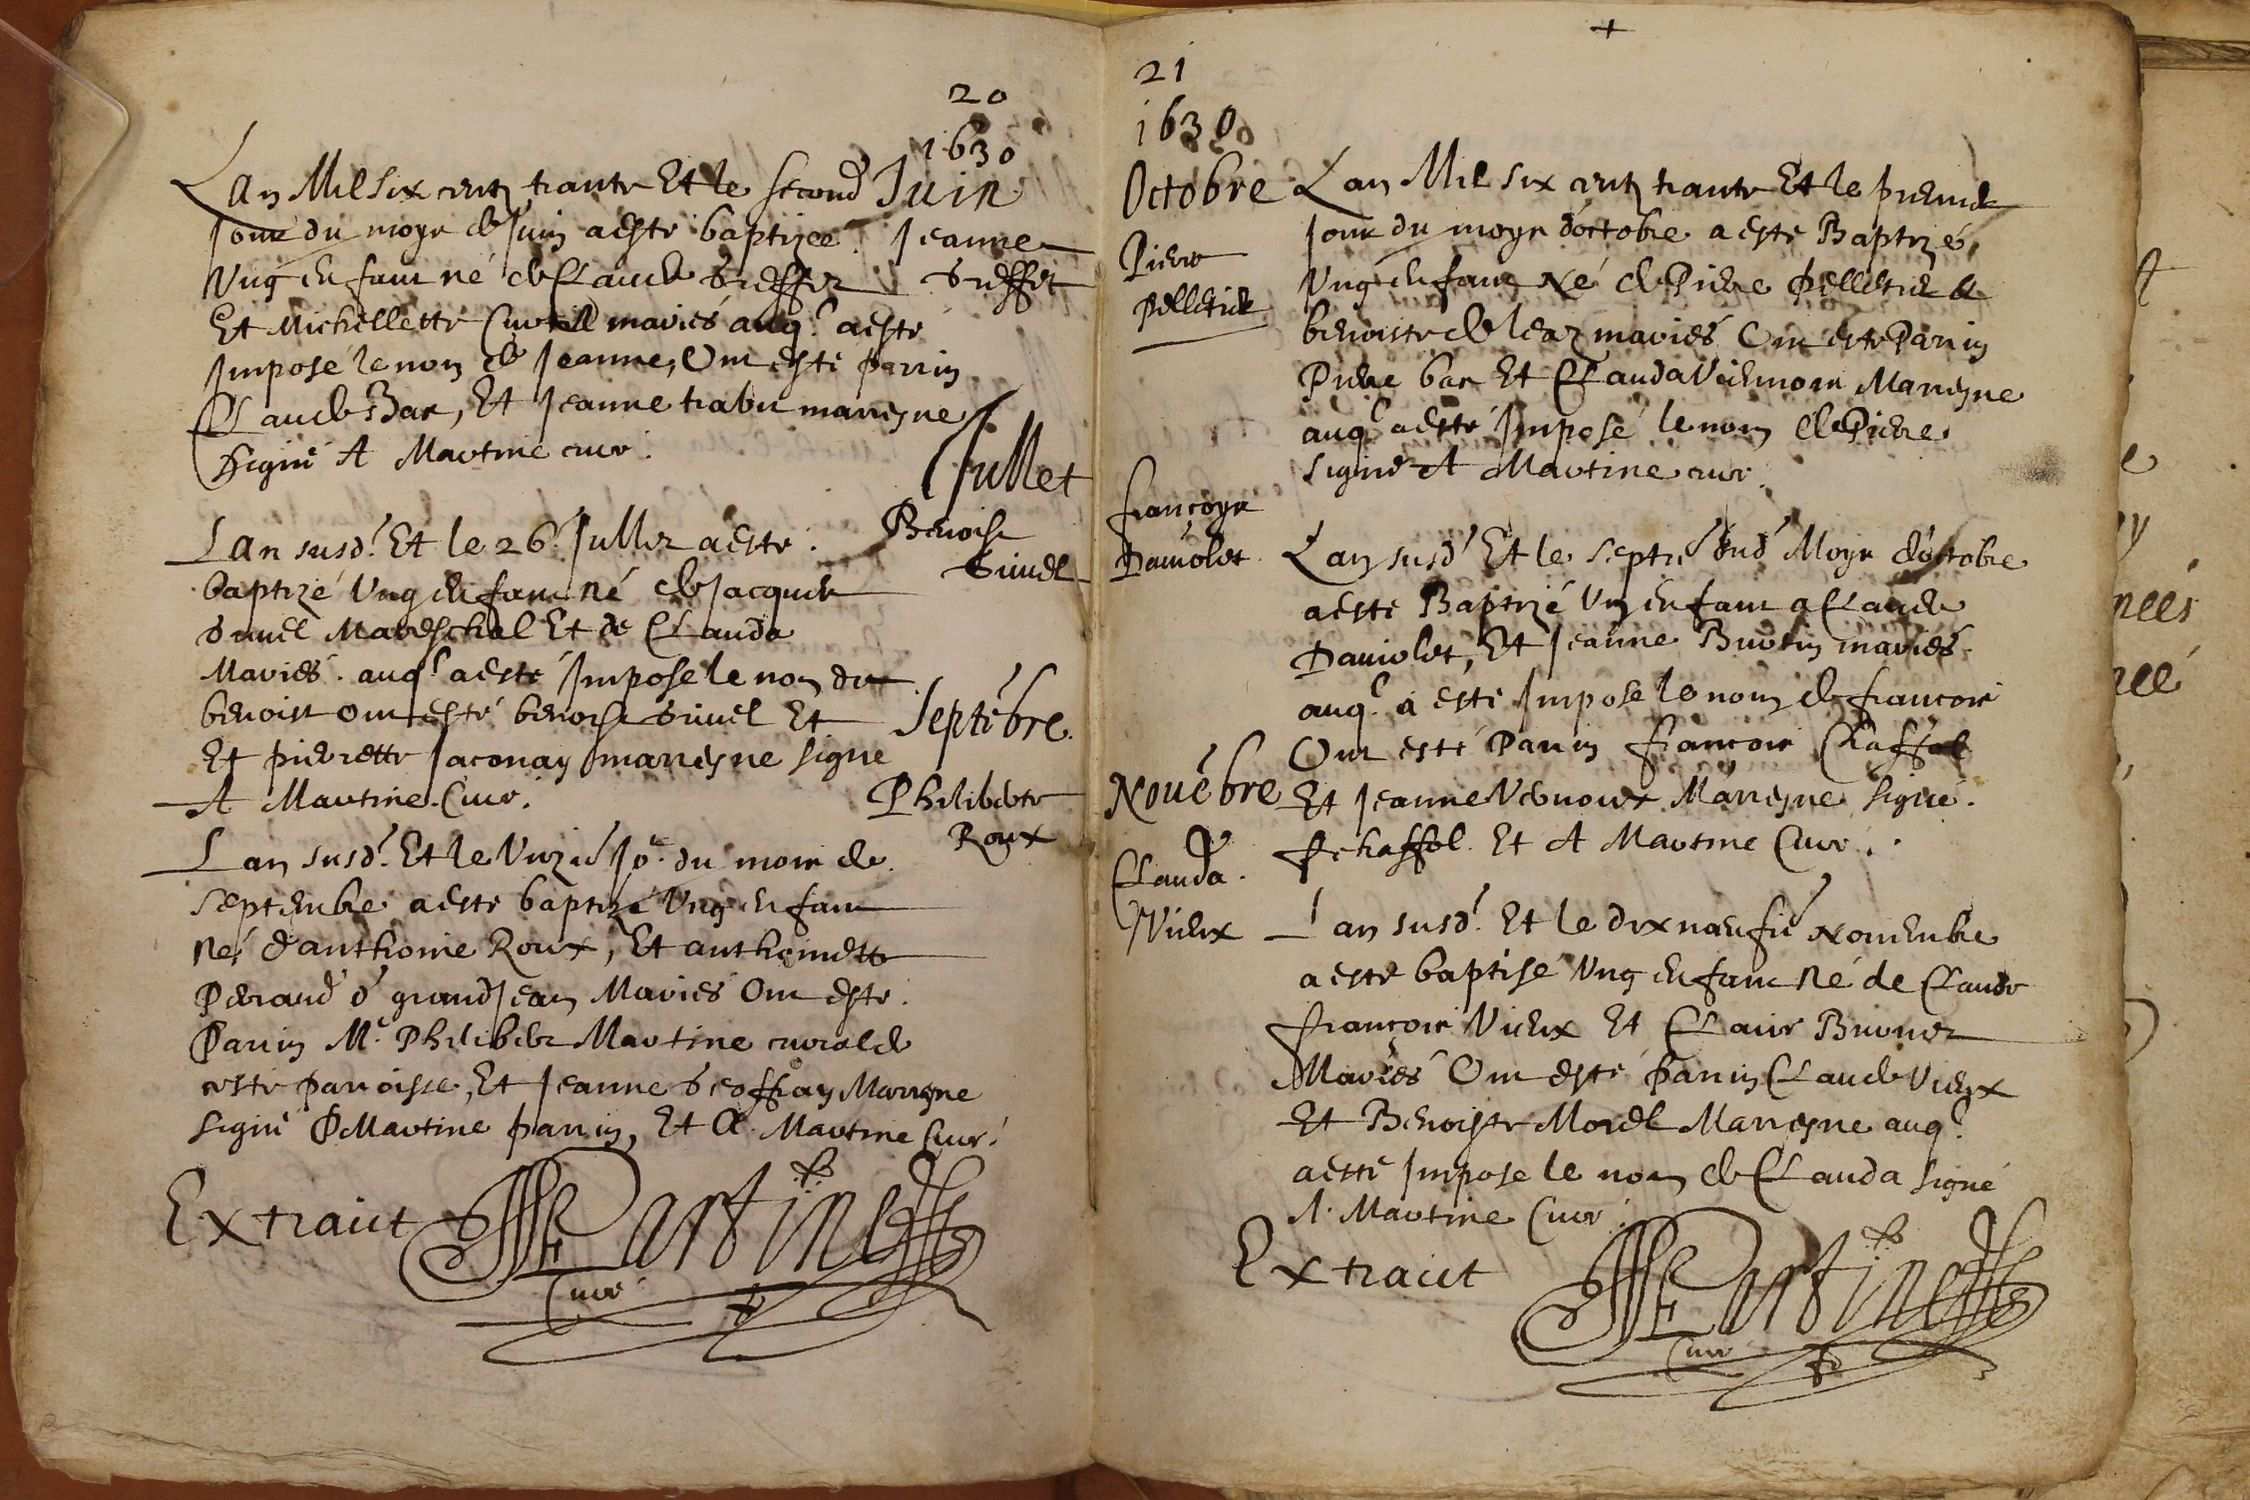 20
1630
Juin
Lan Mil six centz trante Et le second
Jour du moys de Juin a esté baptizee
Jeanne
Ung enfant né de Claude
Et Michellette mariés auq.l a esté
Imposé le nom de Jeanne, Ont esté parrin
Claude Bar, Et Jeanne marreyne
Signé A Martine curé.
Jullet
Benoist
Lan susd.t Et le 26 Jullet a esté
baptizé Ung enfant né de Jacques
Mareschal Et de Clauda
Mariés. auq.l a esté Imposé le nom de
benoist ont esté benoist Et
Et pierrette Jaconay marreyne signé
A Martine. Curé.
Septēbre.
Philiberte
Roux
Lan susd.t Et le Jo.r du mois de
Septembre a esté baptizé Ung enfant
né d'anthoine Roux, Et anthoinette
Peraud d grandJean Mariés Ont esté
Parrin M.e Philibert Martine de
ceste parroisse, Et Jeanne Geoffray Marreyne
Signé P Martine parrin, Et A. Martine Curé.
Extraict Martine
Curé
21
1630
Octobre
Pierre
Pelletier
Lan Mil six centz trante Et le premier
Jour du moys d'octobre a esté Baptizé,
Ung enfant Né de Pierre Pelletier Et
benoiste mariés Ont esté Parrin
Pierre bar Et Clauda Marreyne
auq.l a esté Imposé le nom de Pierre
signé A Martine curé.
françoys
Daviolet
Lan susd.t Et le Septie dud.t Moys d'octobre
a esté Baptizé Un enfant a Claude
Daviolet, Et Jeanne Burtin mariés
auq.l a esté Imposé le nom de françois
Ont esté Parrin françois Chaffal
Et Jeanne Vernoux Marreyne Signé.
f chaffal. Et A Martine Curé.
Nouēbre
Clauda.
Vieux
Lan susd.t Et le dixneufie Novembre
a esté baptisé Ung enfant Né de Claude
françois Vieux Et Claire
Mariés Ont esté parrin Claude Vieux
Et Benoiste Morel Marreyne auq.l
a esté Imposé le nom de Clauda signé
A. Martine Curé
Extraict Martine
Curé